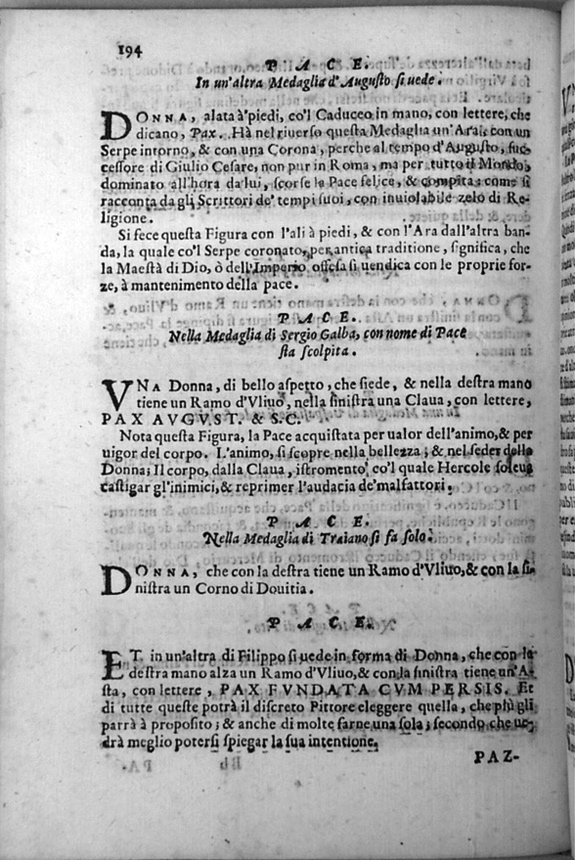 194
P A C E.
In un'altra Medaglia d'Augusto si uede.
DONNA, alata à piedi, co'l Caduceo in mano, con lettere, che
dicano, Pax. Hà nel riuerso questa Medaglia un'Ara, con un
Serpe intorno, & con una Corona, perche al tempo d'Augusto, suc-
cessore di Giulio Cesare, non pur in Roma, ma per tutto il Mondo,
dominato all'hora da lui, scorse la Pace felice, & compita: come si
racconta da gli Scrittori de' tempi suoi, con inuiolabile zelo di Re-
ligione.
Si fece questa Figura con l'ali à piedi, & con l'Ara dall'altra ban-
da, la quale co'l Serpe coronato, per antica traditione, significa, che
la Maestà di Dio, ò dell'Imperio offesa si uendica con le proprie for-
ze, à mantenimento della pace.
P A C E.
Nella Medaglia di Sergio Galba, con nome di Pace
sta scolpita.
VNA Donna, di bello aspetto, che siede, & nella destra mano
tiene un Ramo d'Vliuo, nella sinistra una Claua, con lettere,
PAX AVGVST. & S.C.
Nota questa Figura, la Pace acquistata per ualor dell'animo, & per
uigor del corpo. L'animo, si scopre nella bellezza; & nel seder della
Donna; Il corpo, dalla Claua, istromento, co'l quale Hercole soleua
castigar gl'inimici, & reprimer l'audacia de' malfattori.
P A C E.
Nella Medaglia di Traiano si fa solo.
DONNA, che con la destra tiene un Ramo d'Vliuo, & con la si-
nistra un Corno di Douitia.
P A C E.
ET. in un'altra di Filippo si uede in forma di Donna, che con la
destra mano alza un Ramo d'Vliuo, & con la sinistra tiene un'A-
sta, con lettere, PAX FVNDATA CVM PERSIS. Et
di tutte queste potrà il discreto Pittore eleggere quella, che più gli
parrà à proposito; & anche di molte farne una sola; secondo che ue-
drà meglio potersi spiegar la sua intentione.
PAZ-